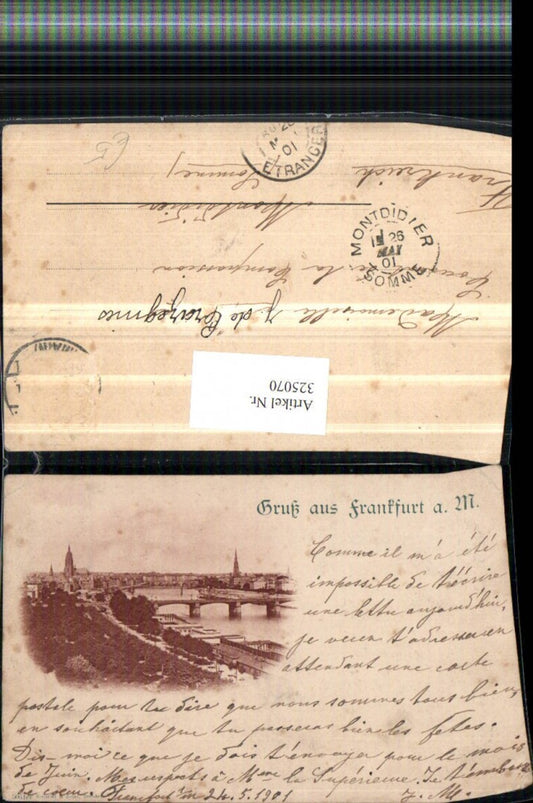 ETRANGER
01
Frankreich
(Somme)
Montdidier
MONTDIDIER
26
MAI
01
SOMME
Compassion
Mademoiselle J de
Artikel Nr.
325070
Gruß aus Frankfurt a. M.
Comme il m'a été
impossible de t'écrire
une lettre aujourd'hui,
je viens t'adresser en
attendant une carte
postale pour te dire que nous sommes tous bien,
en souhaitant que tu passeras bien les fêtes.
Dis-moi ce que je dois t'envoyer pour le mois
de Juin. Mes respects à Mme la Supérieure. Je t'embrasse
de coeur. Francfort s/m 24.5.1901 J. M.